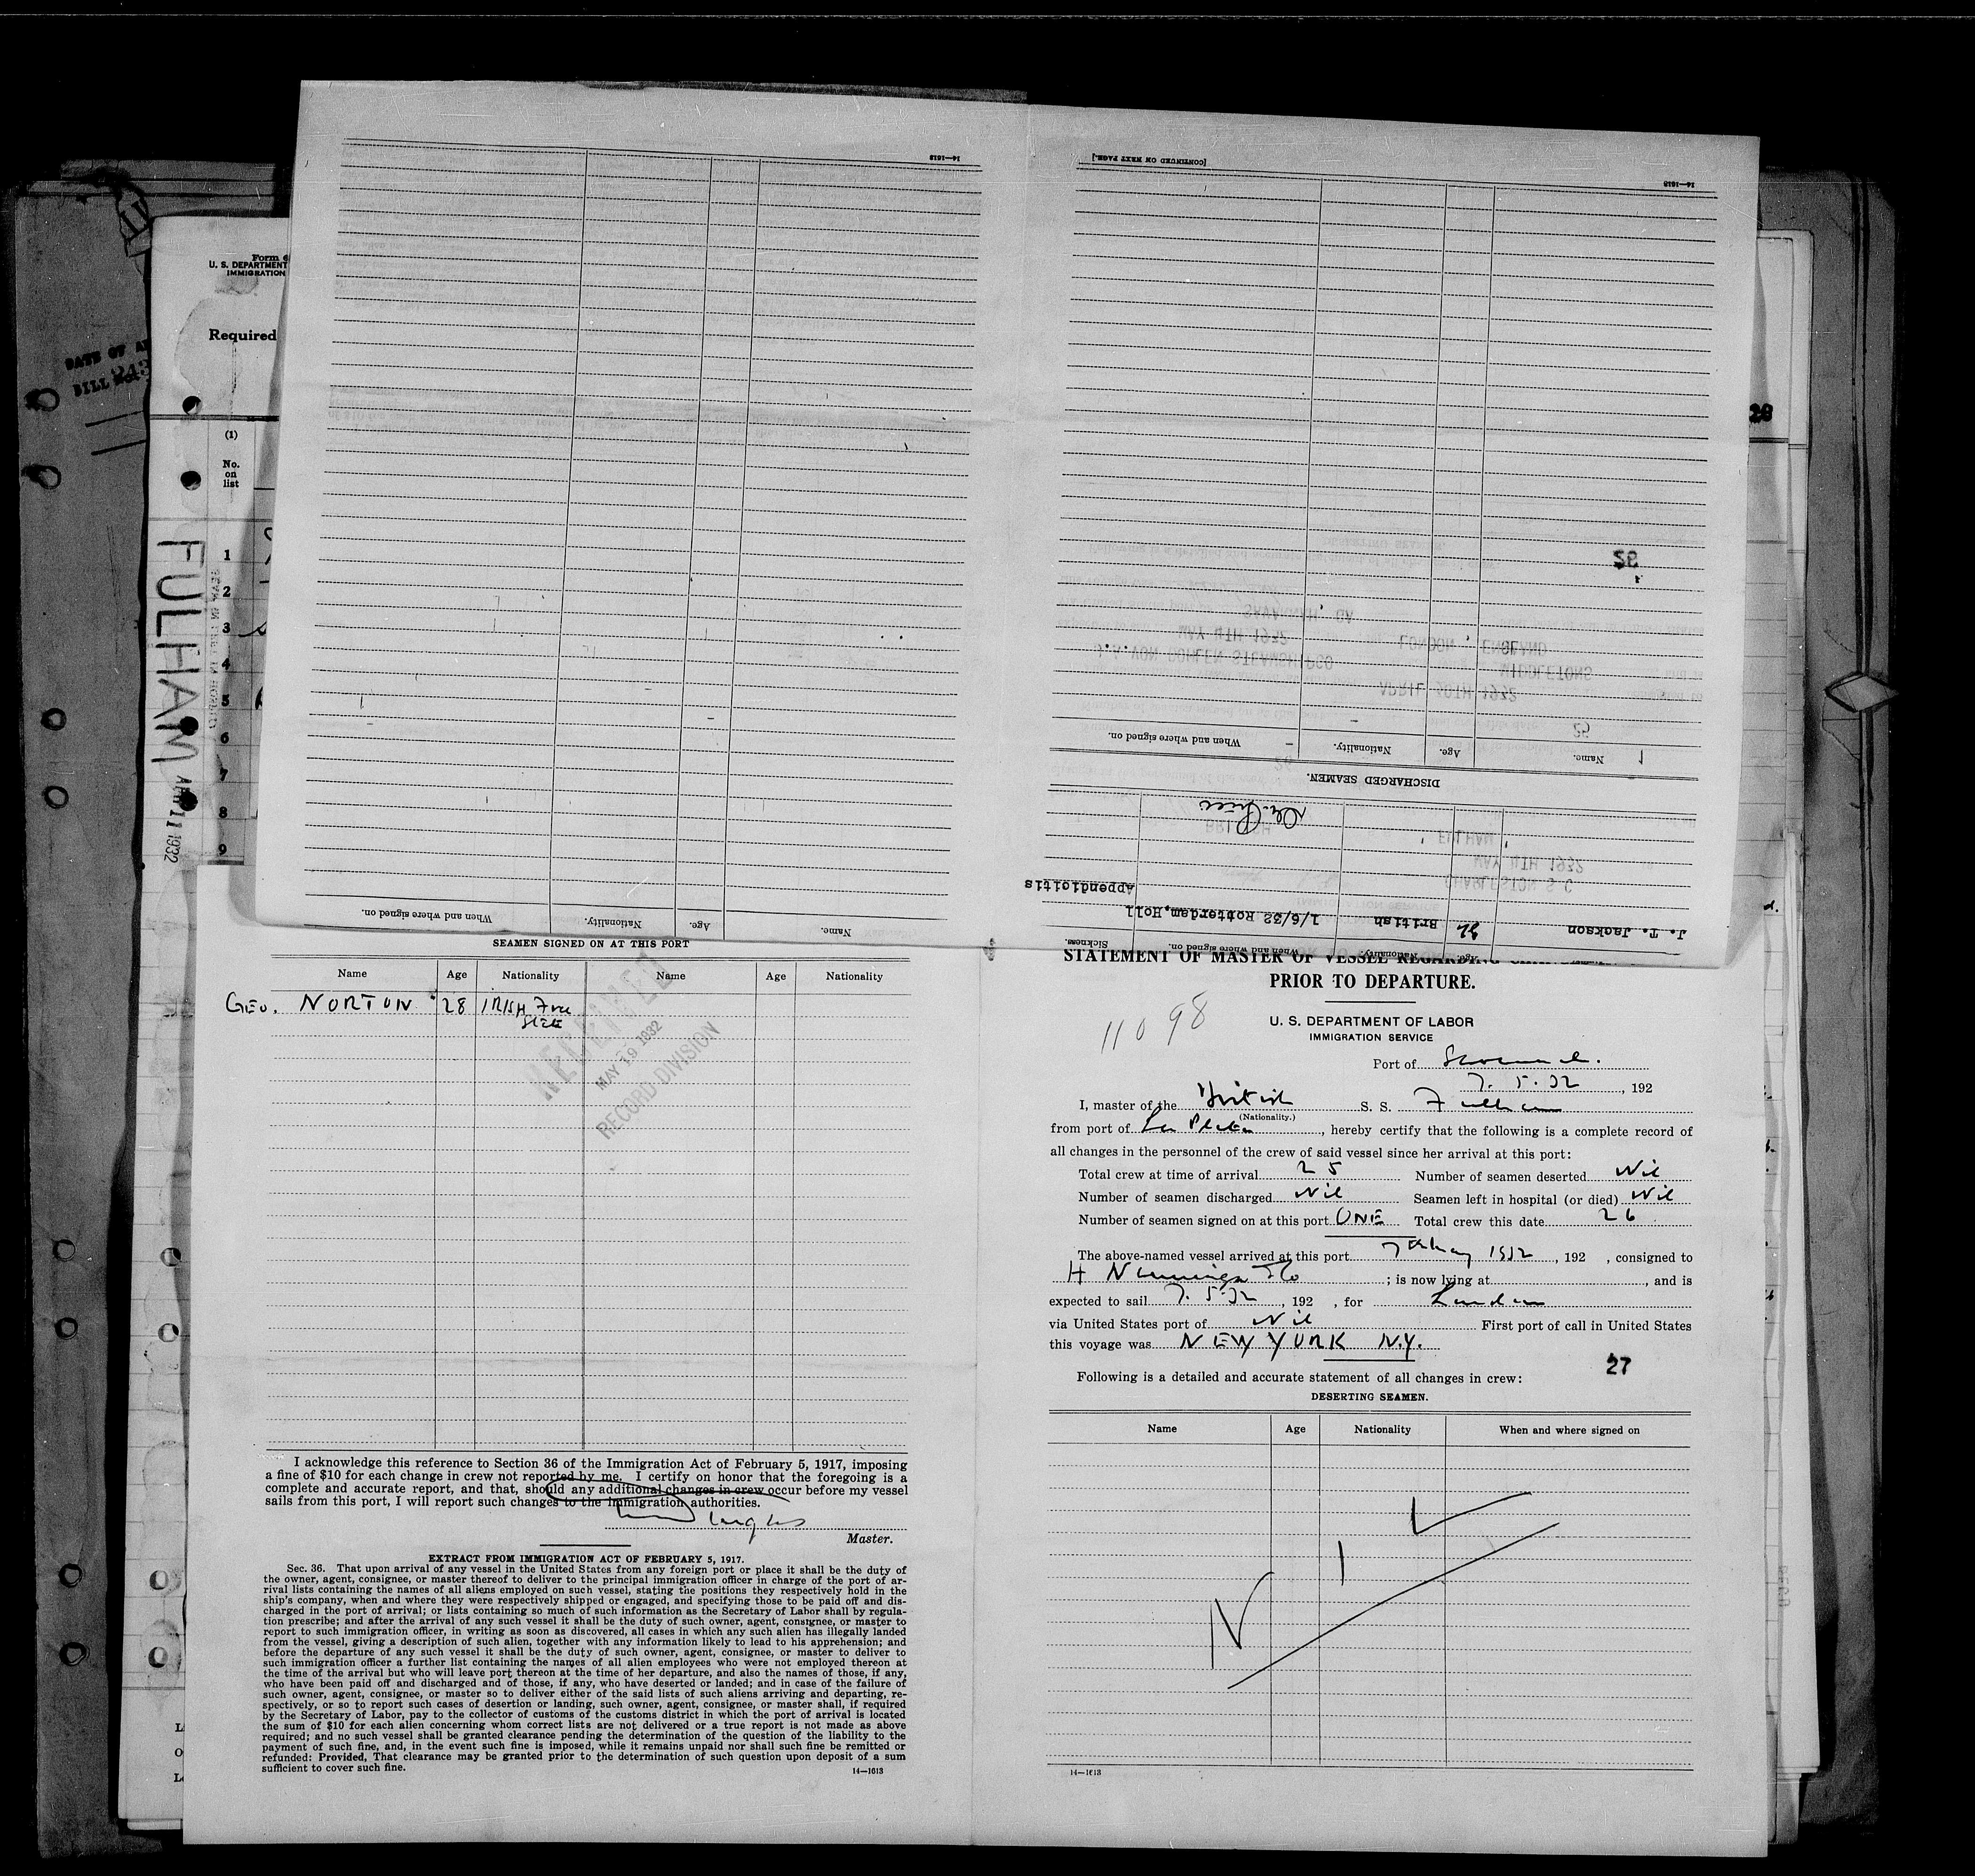 14—1613
[CONTINUED ON NEXT PAGE.]
14—1613
Form
U. S. DEPARTMENT
IMMIGRATION
Required
DATE OF
BILL
(1)
No.
on
list
1
2
3
4
5
6
7
8
9
FULHAM
11 1932
28
Name.
Age.
Nationality.
When and where signed on.
DISCHARGED SEAMEN.
Name.
Age.
Nationality.
When and where signed on.
J. T. Jackson
British
1/6/32 Rotterdam, Holl
Appendicitis
Age.
Nationality.
When and where signed on.
Sickness.
SAVANNAH, GA
MAY 4TH 1932
LONDON, ENGLAND
MIDDLETONS
APRIL 30TH 1932
FULHAM
MAY 4TH 1932
CHARLESTON S C
SEAMEN SIGNED ON AT THIS PORT
Name Age Nationality Name Age Nationality
GEO. NORTON 28 IRISH Free
State
RECEIVED
MAY 19 1932
RECORD DIVISION
I acknowledge this reference to Section 36 of the Immigration Act of February 5, 1917, imposing
a fine of $10 for each change in crew not reported by me. I certify on honor that the foregoing is a
complete and accurate report, and that, should any additional changes in crew occur before my vessel
sails from this port, I will report such changes to the immigration authorities.
Master.
EXTRACT FROM IMMIGRATION ACT OF FEBRUARY 5, 1917.
Sec. 36. That upon arrival of any vessel in the United States from any foreign port or place it shall be the duty of
the owner, agent, consignee, or master thereof to deliver to the principal immigration officer in charge of the port of ar-
rival lists containing the names of all aliens employed on such vessel, stating the positions they respectively hold in the
ship's company, when and where they were respectively shipped or engaged, and specifying those to be paid off and dis-
charged in the port of arrival; or lists containing so much of such information as the Secretary of Labor shall by regula-
tion prescribe; and after the arrival of any such vessel it shall be the duty of such owner, agent, consignee, or master to
report to such immigration officer, in writing as soon as discovered, all cases in which any such alien has illegally landed
from the vessel, giving a description of such alien, together with any information likely to lead to his apprehension; and
before the departure of any such vessel it shall be the duty of such owner, agent, consignee, or master to deliver to
such immigration officer a further list containing the names of all alien employees who were not employed thereon at
the time of the arrival but who will leave port thereon at the time of her departure, and also the names of those, if any,
who have been paid off and discharged and of those, if any, who have deserted or landed; and in case of the failure of
such owner, agent, consignee, or master so to deliver either of the said lists of such aliens arriving and departing, re-
spectively, or so to report such cases of desertion or landing, such owner, agent, consignee, or master shall, if required
by the Secretary of Labor, pay to the collector of customs of the customs district in which the port of arrival is located
the sum of $10 for each alien concerning whom correct lists are not delivered or a true report is not made as above
required; and no such vessel shall be granted clearance pending the determination of the question of the liability to the
payment of such fine, and, in the event such fine is imposed, while it remains unpaid nor shall such fine be remitted or
refunded: Provided, That clearance may be granted prior to the determination of such question upon deposit of a sum
sufficient to cover such fine.
14—1613
STATEMENT OF MASTER OF VESSEL REGARDING
PRIOR TO DEPARTURE.
11098
U. S. DEPARTMENT OF LABOR
IMMIGRATION SERVICE
Port of
7. 5. 32, 192
I, master of the British S. S. Fulham
(Nationality.)
from port of La Plata, hereby certify that the following is a complete record of
all changes in the personnel of the crew of said vessel since her arrival at this port:
Total crew at time of arrival 25 Number of seamen deserted Nil
Number of seamen discharged Nil Seamen left in hospital (or died) Nil
Number of seamen signed on at this port ONE Total crew this date 26
The above-named vessel arrived at this port 7th May 1932, 192 , consigned to
H ; is now lying at , and is
expected to sail 7. 5. 32, 192 , for London
via United States port of Nil First port of call in United States
this voyage was NEW YORK N.Y.
27
Following is a detailed and accurate statement of all changes in crew:
DESERTING SEAMEN.
Name Age Nationality When and where signed on
N I L
14—1613